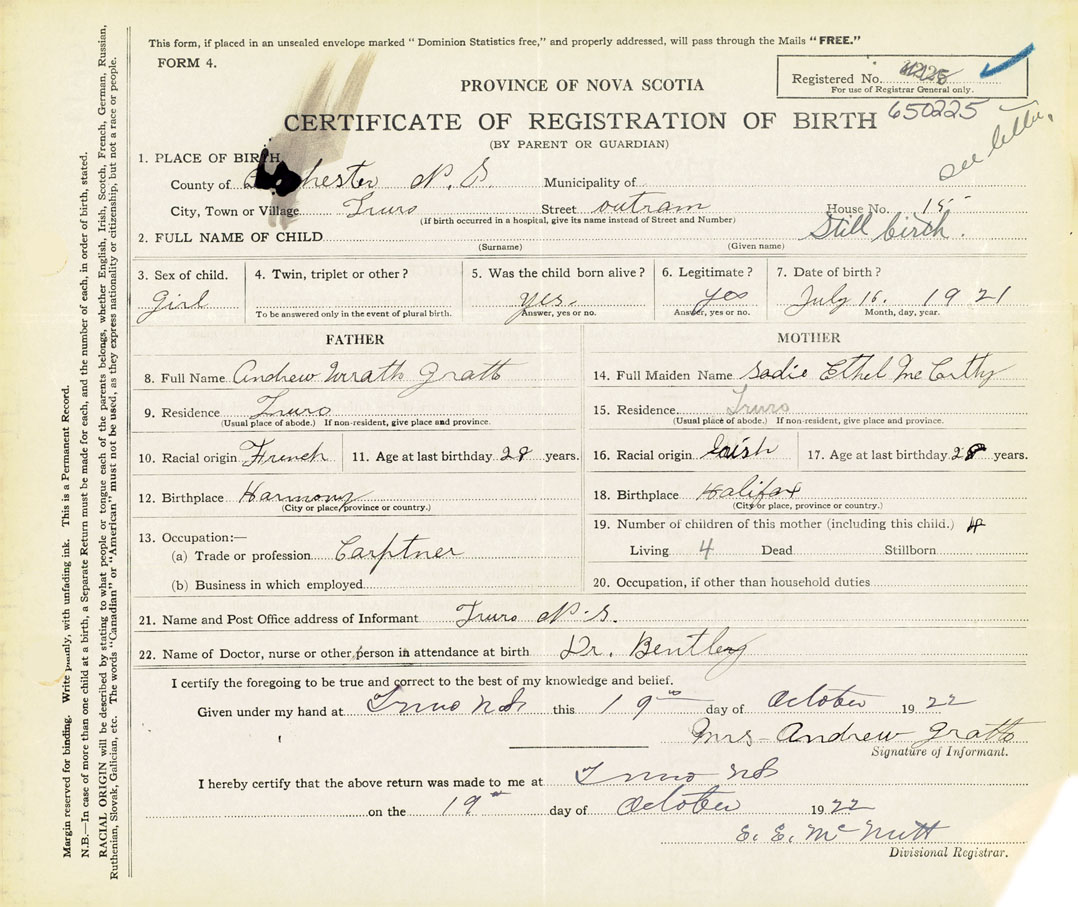 This form, if placed in an unsealed envelope marked "Dominion Statistics free," and properly addressed, will pass through the Mails "FREE."
FORM 4.
PROVINCE OF NOVA SCOTIA
Registered No.
For use of Registrar General only.
650225
see letter.
CERTIFICATE OF REGISTRATION OF BIRTH
(BY PARENT OR GUARDIAN)
1. PLACE OF BIRTH
County of chester N. S. Municipality of
City, Town or Village Truro Street outram House No. 15
(If birth occurred in a hospital, give its name instead of Street and Number)
2. FULL NAME OF CHILD Still birth.
(Surname) (Given name)
3. Sex of child. 4. Twin, triplet or other? 5. Was the child born alive? 6. Legitimate? 7. Date of birth?
Girl yes. yes July 16. 1921
To be answered only in the event of plural birth. Answer, yes or no. Answer, yes or no. Month, day, year.
FATHER
8. Full Name Andrew Gratto
9. Residence Truro
(Usual place of abode.) If non-resident, give place and province.
10. Racial origin French 11. Age at last birthday 28 years.
12. Birthplace Harmony
(City or place, province or country.)
13. Occupation:—
(a) Trade or profession Carptner
(b) Business in which employed
MOTHER
14. Full Maiden Name Sadie Ethel McCarthy
15. Residence Truro
(Usual place of abode.) If non-resident, give place and province.
16. Racial origin Irish 17. Age at last birthday 28 years.
18. Birthplace Halifax
(City or place, province or country.)
19. Number of children of this mother (including this child.) 4
Living 4 Dead Stillborn
20. Occupation, if other than household duties
21. Name and Post Office address of Informant Truro N.S.
22. Name of Doctor, nurse or other person in attendance at birth Dr. Bentley
I certify the foregoing to be true and correct to the best of my knowledge and belief.
Given under my hand at Truro NS this 19 day of October 1922
Mrs Andrew Gratto
Signature of Informant.
I hereby certify that the above return was made to me at Truro NS
on the 19 day of October 1922
E. E. McNutt
Divisional Registrar.
Margin reserved for binding. Write plainly, with unfading ink. This is a Permanent Record.
N.B.—In case of more than one child at a birth, a Separate Return must be made for each, and the number of each, in order of birth, stated.
RACIAL ORIGIN will be described by stating to what people or tongue each of the parents belongs, whether English, Irish, Scotch, French, German, Russian,
Ruthenian, Slovak, Galician, etc. The words "Canadian" or "American" must not be used, as they express nationality or citizenship, but not a race or people.